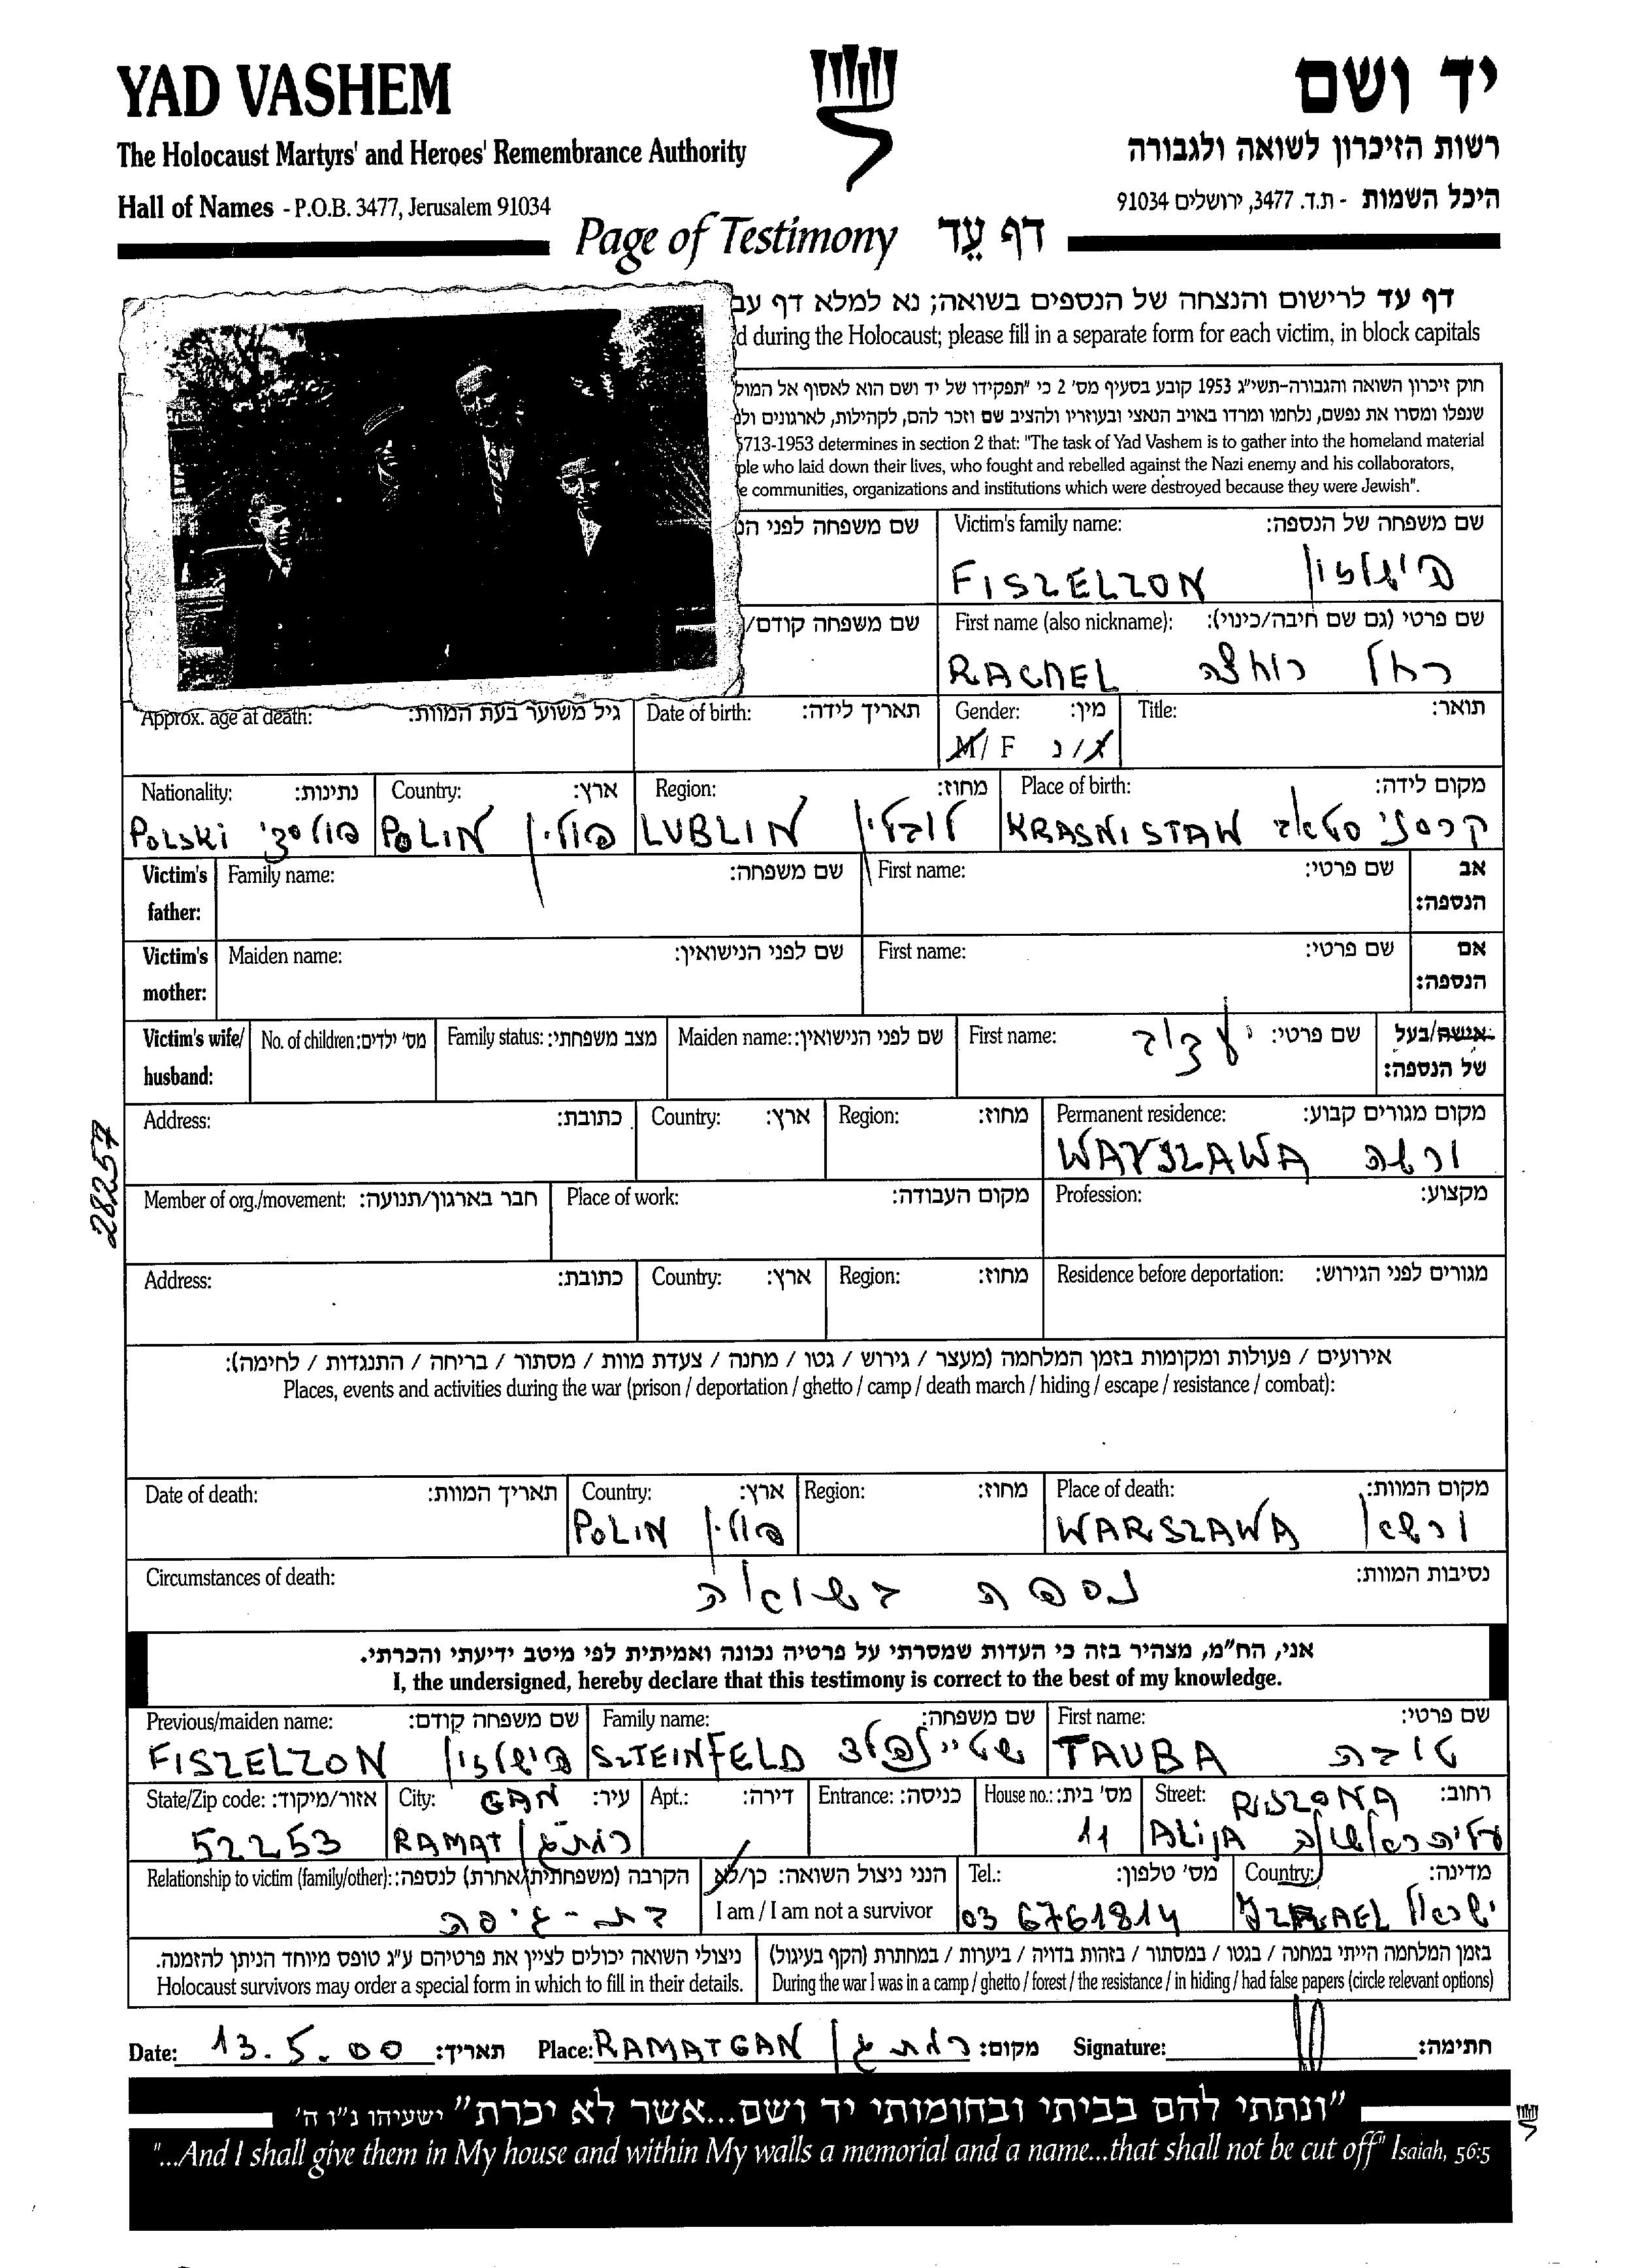 YAD VASHEM
יד ושם
The Holocaust Martyrs' and Heroes' Remembrance Authority
רשות הזיכרון לשואה ולגבורה
Hall of Names - P.O.B. 3477, Jerusalem 91034
היכל השמות - ת.ד. 3477, ירושלים 91034
Page of Testimony דף עֵד
דף עד לרישום והנצחה של הנספים בשואה; נא למלא דף עב
d during the Holocaust; please fill in a separate form for each victim, in block capitals
חוק זיכרון השואה והגבורה-תשי"ג 1953 קובע בסעיף מס' 2 כי "תפקידו של יד ושם הוא לאסוף אל המול
שנפלו ומסרו את נפשם, נלחמו ומרדו באויב הנאצי ובעוזריו ולהציב שם וזכר להם, לקהילות, לארגונים ולמ
5713-1953 determines in section 2 that: "The task of Yad Vashem is to gather into the homeland material
ple who laid down their lives, who fought and rebelled against the Nazi enemy and his collaborators,
e communities, organizations and institutions which were destroyed because they were Jewish".
שם משפחה לפני הנ
Victim's family name: שם משפחה של הנספה:
FISZELZON פישלזון
שם משפחה קודם/
First name (also nickname): שם פרטי (גם שם חיבה/כינוי):
RACHEL רחל רוחצה
Approx. age at death: גיל משוער בעת המוות:
Date of birth: תאריך לידה:
Gender: מין:
M/ F ז/נ
Title: תואר:
Nationality: נתינות:
POLSKI פולסקי
Country: ארץ:
POLIN פולין
Region: מחוז:
LUBLIN לובלין
Place of birth: מקום לידה:
KRASNISTAW קרסניסטאב
Victim's father: Family name: שם משפחה:
First name: שם פרטי: אב הנספה:
Victim's mother: Maiden name: שם לפני הנישואין:
First name: שם פרטי: אם הנספה:
Victim's wife/ husband: No. of children: מס' ילדים:
Family status: מצב משפחתי:
Maiden name: שם לפני הנישואין:
First name: שם פרטי: יעקב
אישה/בעל של הנספה:
Address: כתובת:
Country: ארץ:
Region: מחוז:
Permanent residence: מקום מגורים קבוע:
WARSZAWA ורשה
28257
Member of org./movement: חבר בארגון/תנועה:
Place of work: מקום העבודה:
Profession: מקצוע:
Address: כתובת:
Country: ארץ:
Region: מחוז:
Residence before deportation: מגורים לפני הגירוש:
אירועים / פעולות ומקומות בזמן המלחמה (מעצר / גירוש / גטו / מחנה / צעדת מוות / מסתור / בריחה / התנגדות / לחימה):
Places, events and activities during the war (prison / deportation / ghetto / camp / death march / hiding / escape / resistance / combat):
Date of death: תאריך המוות:
Country: ארץ:
POLIN פולין
Region: מחוז:
Place of death: מקום המוות:
WARSZAWA
Circumstances of death: נסיבות המוות:
נספה בשואה
אני, הח"מ, מצהיר בזה כי העדות שמסרתי על פרטיה נכונה ואמיתית לפי מיטב ידיעתי והכרתי.
I, the undersigned, hereby declare that this testimony is correct to the best of my knowledge.
Previous/maiden name: שם משפחה קודם:
FISZELZON פישלזון
Family name: שם משפחה:
SZTEINFELD שטיינפלד
First name: שם פרטי:
TAUBA טובה
State/Zip code: אזור/מיקוד:
52253
City: עיר:
GAN
RAMAT רמת גן
Apt.: דירה:
Entrance: כניסה:
House no.: מס' בית:
11
Street: רחוב:
RISZONA
ALIJA
Relationship to victim (family/other): הקרבה (משפחתית/אחרת) לנספה:
בת-גיסה
הנני ניצול השואה: כן/לא
I am / I am not a survivor
Tel.: מס' טלפון:
03 6761814
Country: מדינה:
IZRAEL ישראל
ניצולי השואה יכולים לציין את פרטיהם ע"ג טופס מיוחד הניתן להזמנה.
Holocaust survivors may order a special form in which to fill in their details.
בזמן המלחמה הייתי במחנה / בגטו / במסתור / בזהות בדויה / ביערות / במחתרת (הקף בעיגול)
During the war I was in a camp / ghetto / forest / the resistance / in hiding / had false papers (circle relevant options)
Date: 13.5.00 תאריך: Place: RAMATGAN רמת גן מקום: Signature: חתימה:
"ונתתי להם בביתי ובחומותי יד ושם...אשר לא יכרת" ישעיהו נ"ו ה'
"...And I shall give them in My house and within My walls a memorial and a name...that shall not be cut off" Isaiah, 56:5